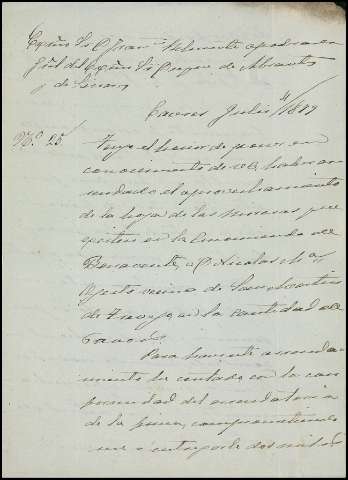 Exmo Sr D Franco Belmonte apoderado
Gral del Exmo Sr Duque de Abrantes
y de Linares
Caceres Julio 4/1889
No 25 Tengo el honor de poner en
conocimiento de VE haber ar
rendado el aprovechamiento
de la hoja de las moreras que
existen en la Encomienda de
Benavente, a D Nicolas Ma
vecino de San Martin
de Trevejo en la cantidad de
Para hacerle arrenda
miento he contado con la con
formidad del arrendatario
de la finca, comprometiendo
me a entregarle dos mil